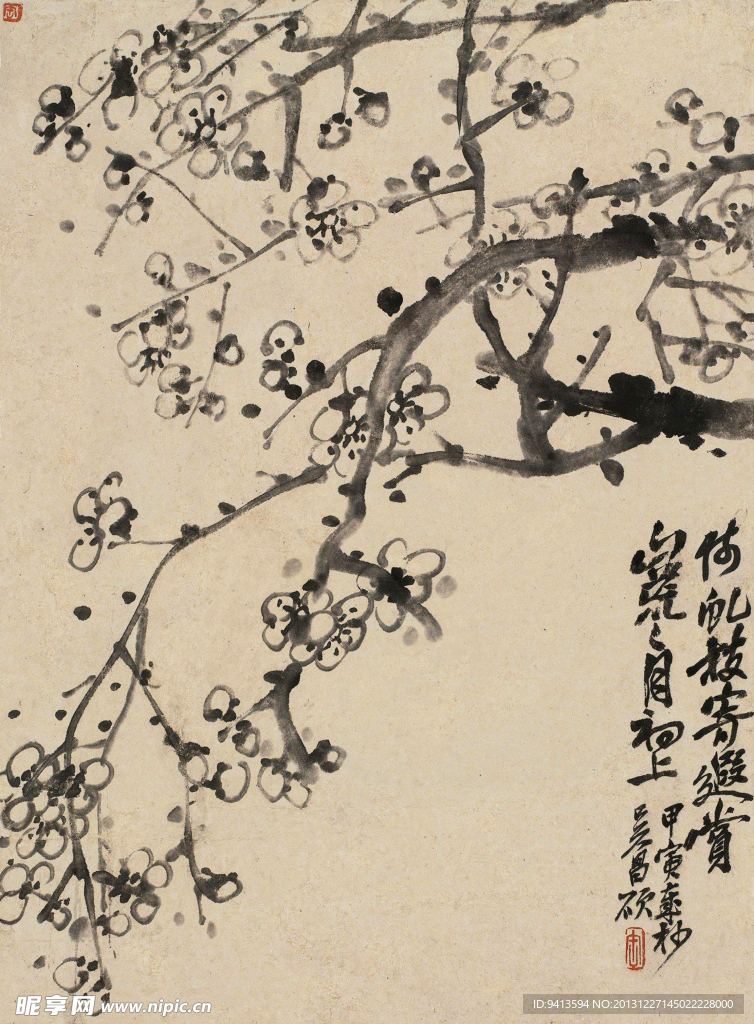 倚虬枝寄遐赏
山荒之月初上
甲寅春杪
吴昌硕
昵享网 www.nipic.cn
ID:9413594 NO:20131227145022228000